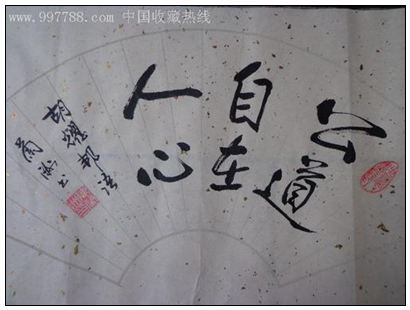 www.997788.com 中国收藏热线
公道
自在
人心
胡耀邦语